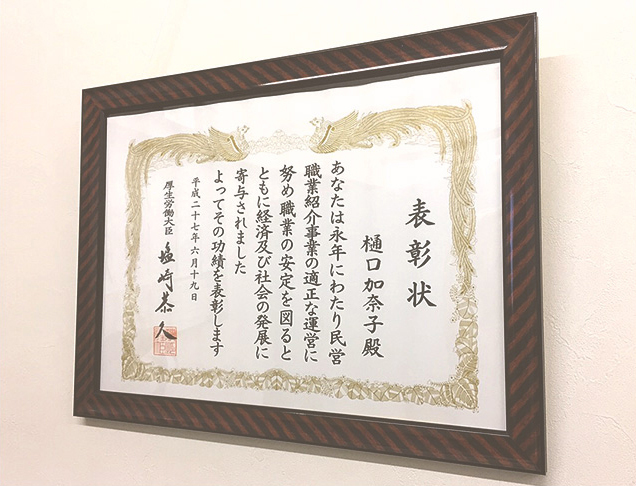 表彰状
樋口加奈子殿
あなたは永年にわたり民営
職業紹介事業の適正な運営に
努め職業の安定を図ると
ともに経済及び社会の発展に
寄与されました
よってその功績を表彰します
平成二十七年六月十九日
厚生労働大臣 塩崎恭久